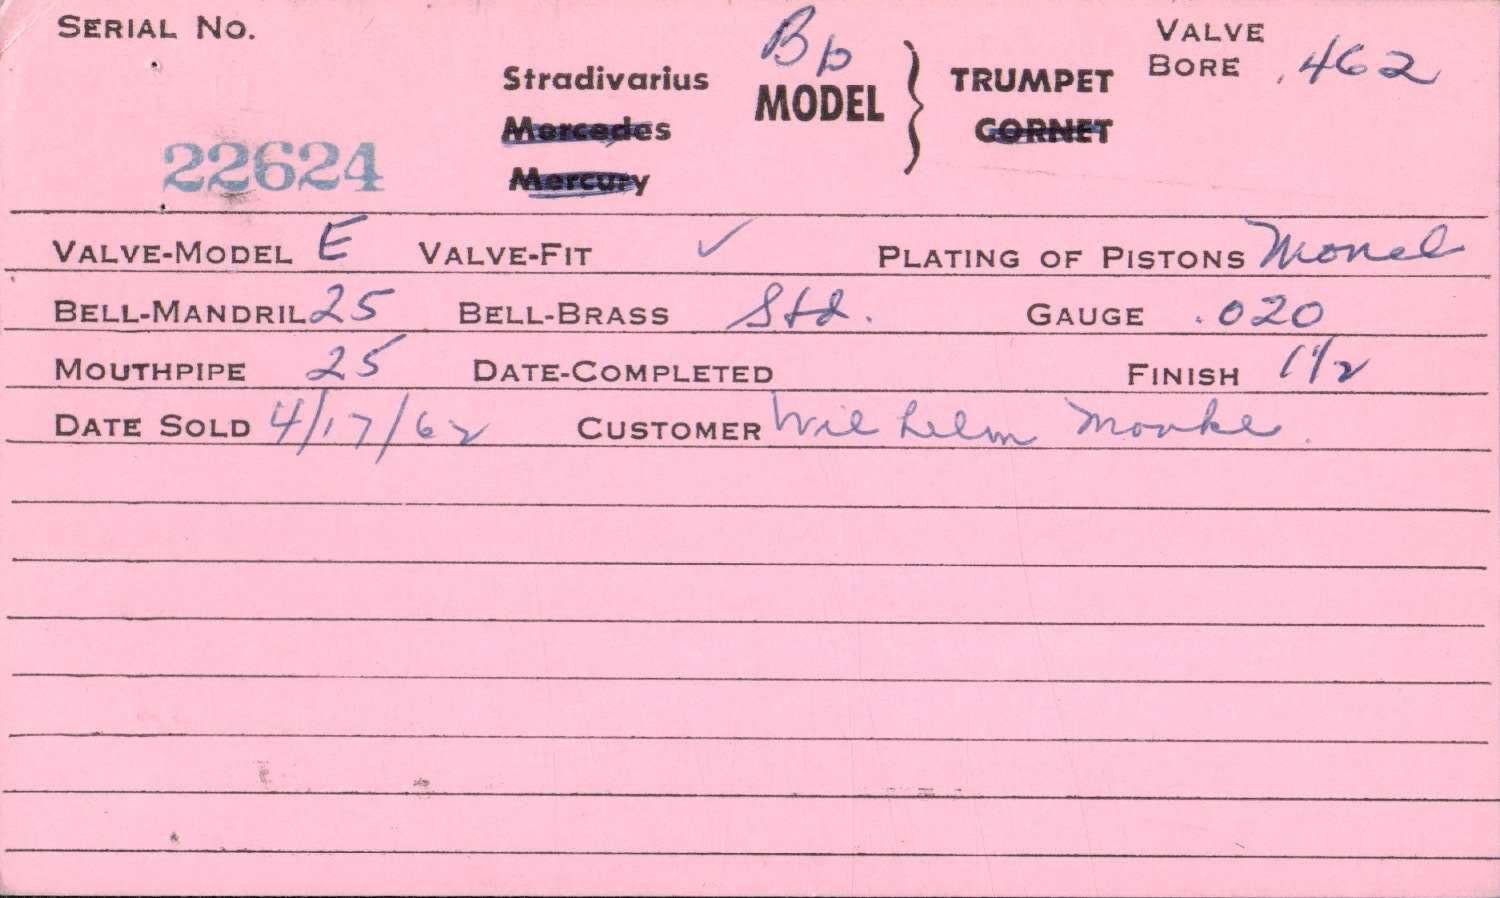 SERIAL NO.
22624
Stradivarius
Mercedes
Mercury
Bb
MODEL
TRUMPET
CORNET
VALVE BORE .462
VALVE-MODEL E VALVE-FIT ✓ PLATING OF PISTONS Monel
BELL-MANDRIL 25 BELL-BRASS Std. GAUGE .020
MOUTHPIPE 25 DATE-COMPLETED FINISH 1 1/2
DATE SOLD 4/17/62 CUSTOMER Wilhelm Monke